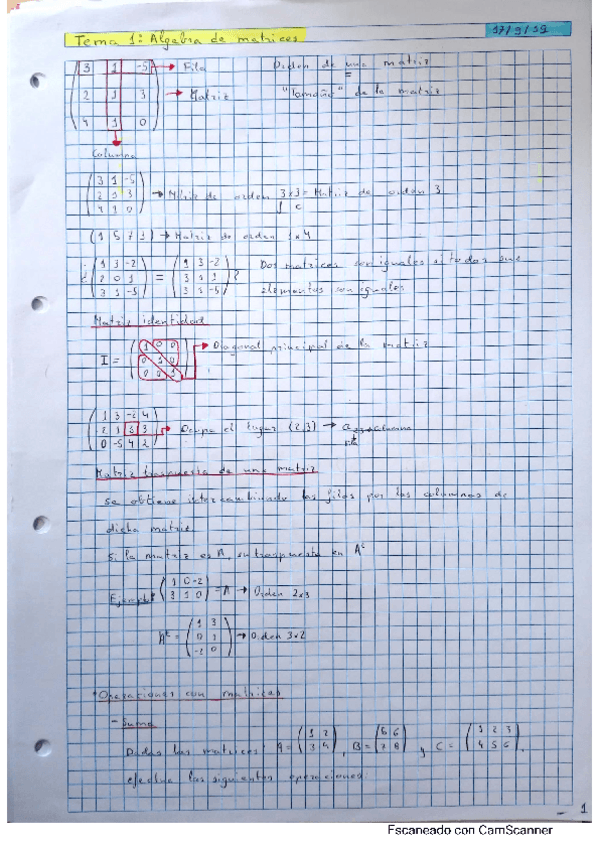 17/9/19
Tema 1: Álgebra de matrices
3 1 -5 → Fila Orden de una matriz
2 1 3 → Matriz "Tamaño" de la matriz
4 1 0
Columna
3 1 -5
2 1 3 → Matriz de orden 3x3 = Matriz de orden 3
4 1 0 f c
(1 5 7 3) → Matriz de orden 1x4
1 3 -2 1 3 -2
¿ 2 0 1 = 3 1 ? Dos matrices son iguales si todos sus
3 1 -5 3 1 -5 elementos son iguales
Matriz identidad
1 0 0 → Diagonal principal de la matriz
I = 0 1 0
0 0 1
1 3 -2 4
2 1 3 3 → Ocupa el lugar (2,3) → a columna
0 -5 4 2
Matriz traspuesta de una matriz
se obtiene intercambiando las filas por las columnas de
dicha matriz
Si la matriz es A, su traspuesta en Aᵗ
Ejemplo: 1 0 -2
3 1 0 = A → Orden 2x3
1 3
Aᵗ = 0 1 → Orden 3x2
-2 0
Operaciones con matrices
- Suma
Dadas las matrices A = (1 2 3 4), B = ( 6 7 8) y C = ( 2 3 4 5 6),
efectua las siguientes operaciones:
1
Escaneado con CamScanner